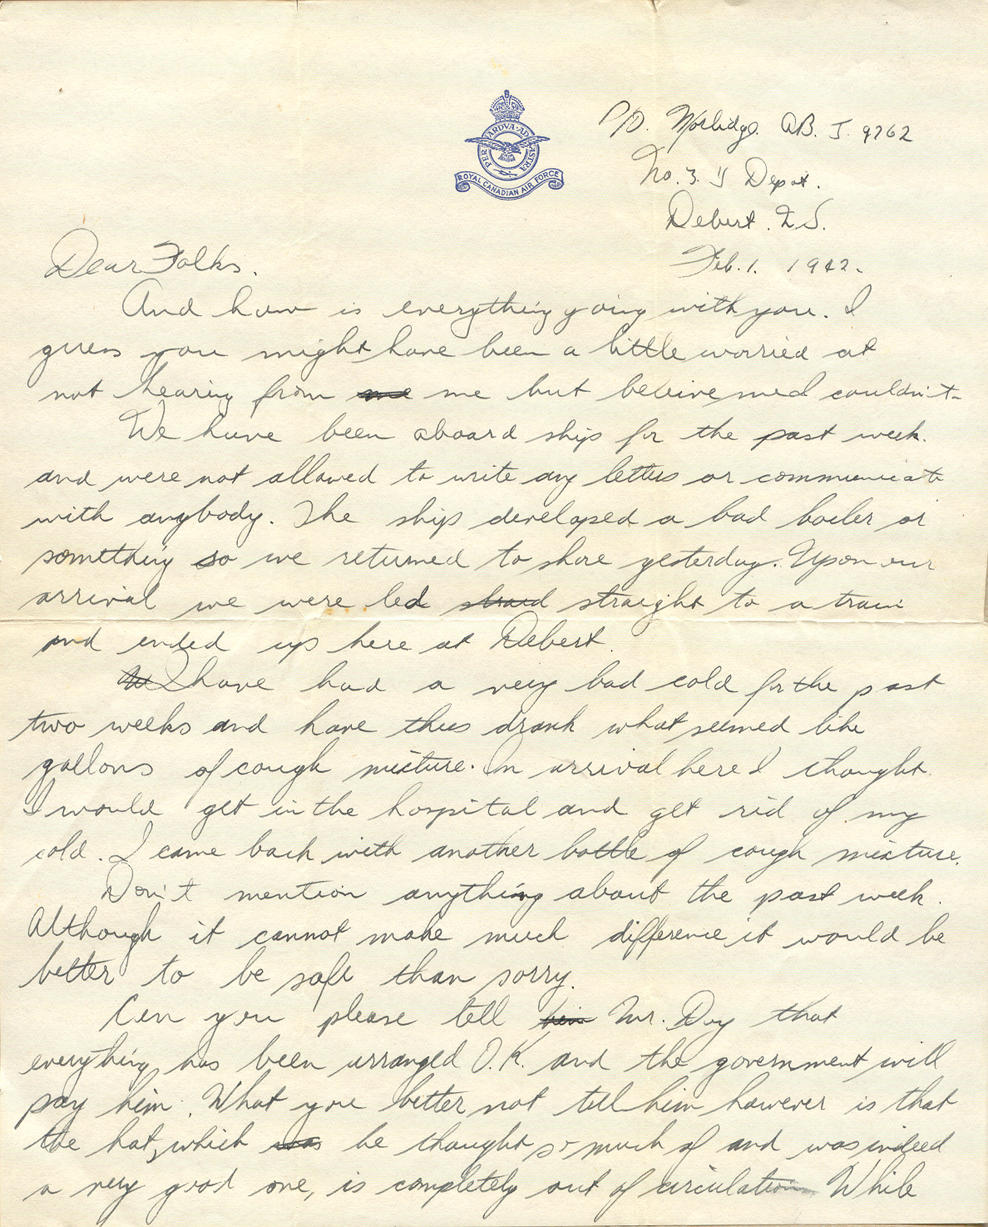 PER ARDVA AD ASTRA
ROYAL CANADIAN AIR FORCE
P/O. Norlidge. A.B. J. 9762
No. 3. "Y" Depot.
Debert. N.S.
Feb. 1. 1942.
Dear Folks.
And how is everything going with you. I
guess you might have been a little worried at
not hearing from me me but believe me I couldn't
We have been aboard ship for the past week.
and were not allowed to write any letters or communicate
with anybody. The ship developed a bad boiler or
something so we returned to shore yesterday. Upon our
arrival we were led straid straight to a train
and ended up here at Debert.
I have had a very bad cold for the past
two weeks and have thus drank what seemed like
gallons of cough mixture. On arrival here I thought
I would get in the hospital and get rid of my
cold. I came back with another bottle of cough mixture.
Don't mention anything about the past week.
Although it cannot make much difference it would be
better to be safe than sorry.
Can you please tell him Mr. Day that
everything has been arranged O.K. and the government will
pay him. What you better not tell him however is that
the hat, which was he thought so much of and was indeed
a very good one, is completely out of circulation. While